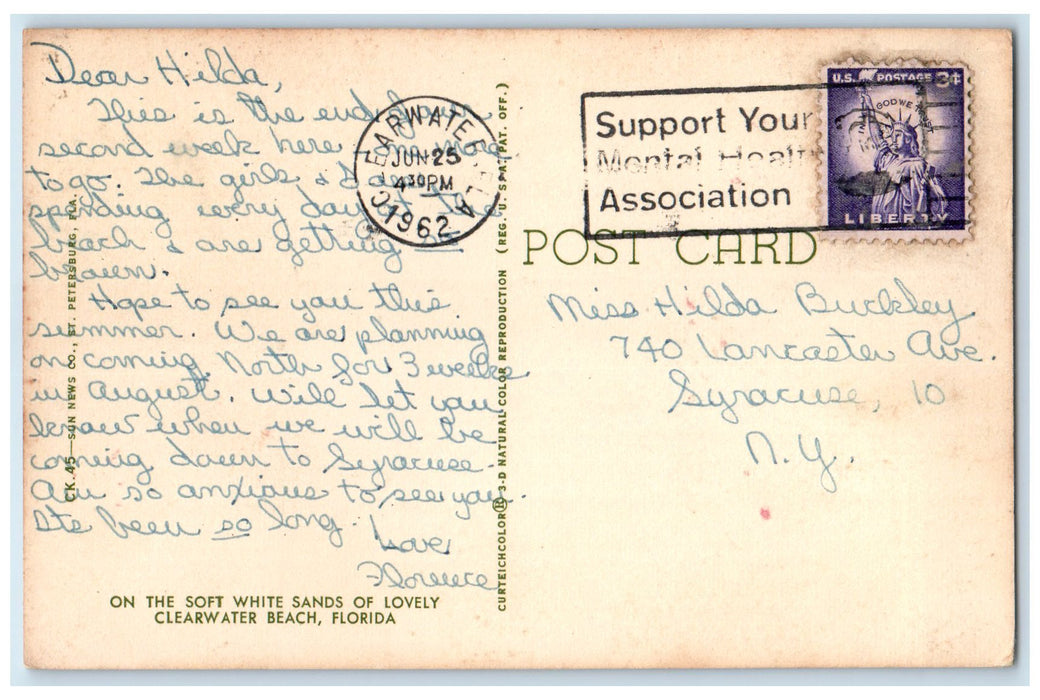 Dear Hilda,
This is the end of our
second week here one more
to go. The girls & I are
spending every day at the
beach & are getting
brown.
Hope to see you this
summer. We are planning
on coming North for 3 weeks
in August. Will let you
know when we will be
coming down to Syracuse.
Am so anxious to see you.
Its been so long.
Love
Florence
ON THE SOFT WHITE SANDS OF LOVELY
CLEARWATER BEACH, FLORIDA
CK.45—SUN NEWS CO., ST. PETERSBURG, FLA.
CURTEICHCOLOR® 3-D NATURAL COLOR REPRODUCTION (REG. U.S.A. PAT. OFF.)
CLEARWATER FLA
JUN 25
4 30 PM
1962
Support Your
Mental Health
Association
U.S. POSTAGE 3¢
IN GOD WE TRUST
LIBERTY
POST CARD
Miss Hilda Buckley
740 Lancaster Ave.
Syracuse, 10
N.Y.